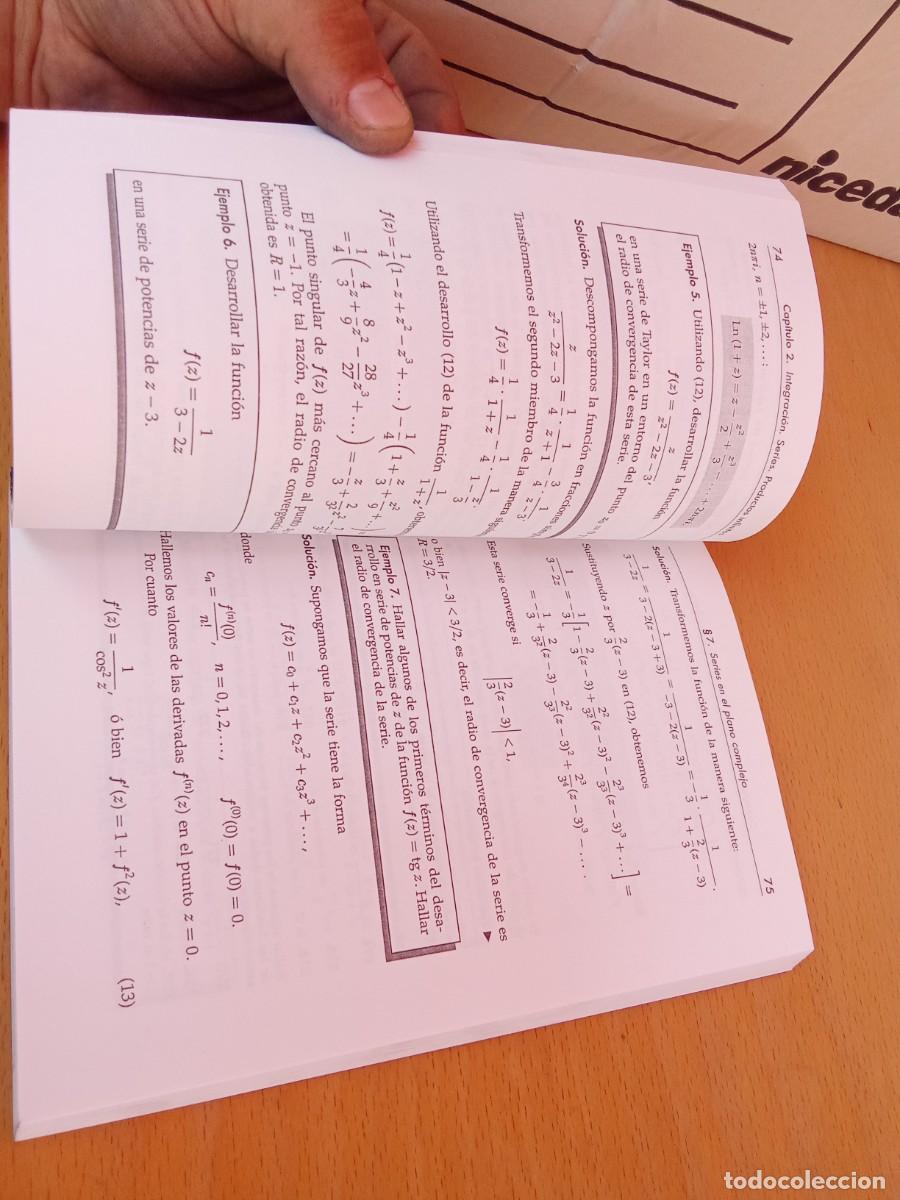 74 Capítulo 2. Integración, Series, Productos
2nπi, n = ±1, ±2, ...:
Ln (1 + z) = z − z²/2 + z³/3 − ... + 2nπi
Ejemplo 5. Utilizando (12), desarrollar la función
f(z) = z/(z² − 2z − 3),
en una serie de Taylor en un entorno del punto
el radio de convergencia de esta serie.
Solución. Descompongamos la función en fracciones
z/(z² − 2z − 3) = 1/4 · 1/(z + 1) + 3/4 · 1/(z − 3).
Transformemos el segundo miembro de la manera
f(z) = 1/4 · 1/(1 + z) − 1/4 · 1/(1 − z/3).
Utilizando el desarrollo (12) de la función 1/(1 + z),
f(z) = 1/4 (1 − z + z² − z³ + ...) − 1/4 (1 + z/3 + z²/9 + ...
= 1/4 (−4/3 z + 8/9 z² − 28/27 z³ + ...) = −z/3 + 2/3² z² −
El punto singular de f(z) más cercano al punto
punto z = −1. Por tal razón, el radio de
obtenida es R = 1.
Ejemplo 6. Desarrollar la función
f(z) = 1/(3 − 2z)
en una serie de potencias de z − 3.
§ 7. Series en el plano complejo 75
Solución. Transformemos la función de la manera siguiente:
1/(3 − 2z) = 1/(3 − 2(z − 3 + 3)) = 1/(−3 − 2(z − 3)) = −1/3 · 1/(1 + 2/3 (z − 3)).
Sustituyendo z por 2/3 (z − 3) en (12), obtenemos
1/(3 − 2z) = −1/3 [1 − 2/3 (z − 3) + 2²/3² (z − 3)² − 2³/3³ (z − 3)³ + ...] =
= −1/3 + 2/3² (z − 3) − 2²/3³ (z − 3)² + 2³/3⁴ (z − 3)³ − ... .
Esta serie converge si
|2/3 (z − 3)| < 1,
o bien |z − 3| < 3/2, es decir, el radio de convergencia de la serie es
R = 3/2. ▶
Ejemplo 7. Hallar algunos de los primeros términos del desa-
rrollo en serie de potencias de z de la función f(z) = tg z. Hallar
el radio de convergencia de la serie.
Solución. Supongamos que la serie tiene la forma
f(z) = c₀ + c₁z + c₂z² + c₃z³ + ...,
donde
cₙ = f⁽ⁿ⁾(0)/n!, n = 0, 1, 2, ..., f⁽⁰⁾(0) = f(0) = 0.
Hallemos los valores de las derivadas f⁽ⁿ⁾(z) en el punto z = 0.
Por cuanto
f′(z) = 1/cos² z, ó bien f′(z) = 1 + f²(z), (13)
todocoleccion